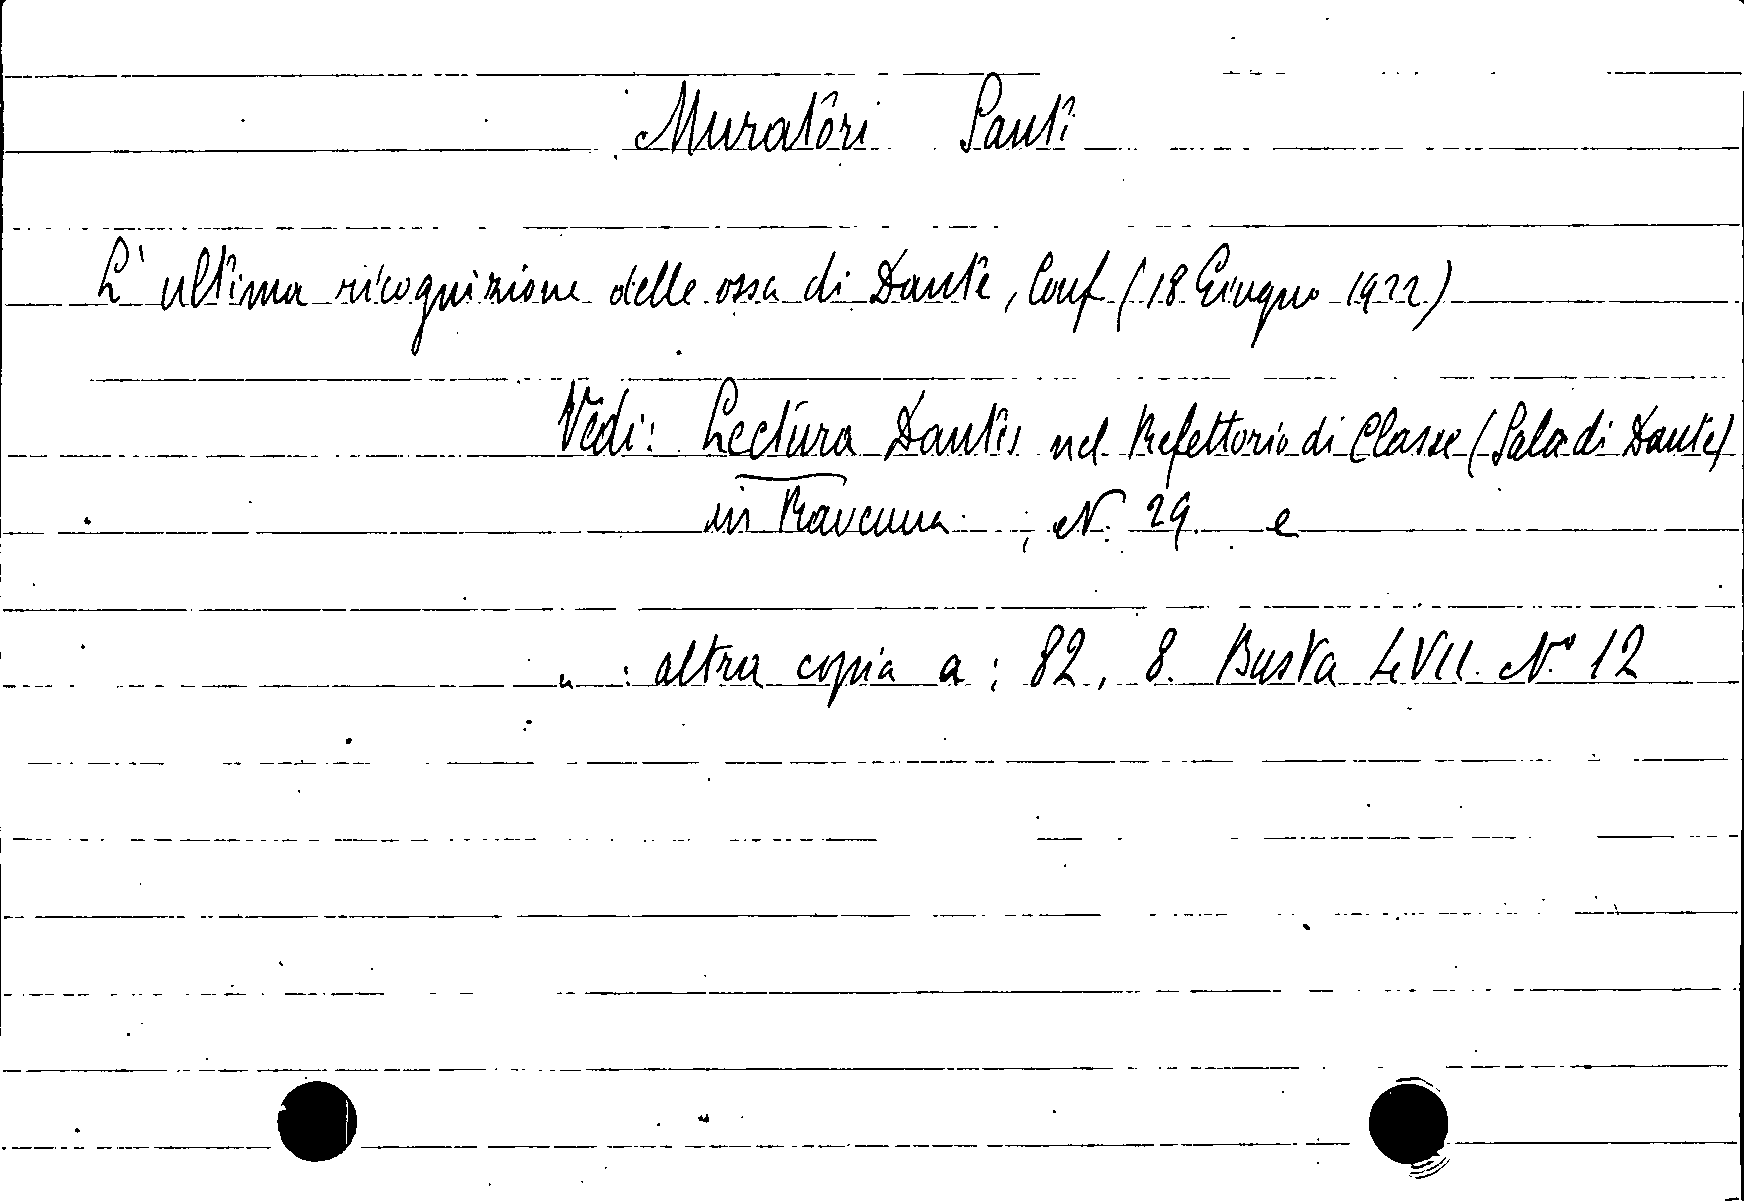 Muratori Santi
L'ultima ricognizione delle ossa di Dante, Conf (18 Giugno 1922)
Vedi: Lectura Dantis nel Refettorio di Classe (Sala di Dante)
in Ravenna ; N. 29 e
" : altra copia a ; 82, 8. Busta LVII. N° 12